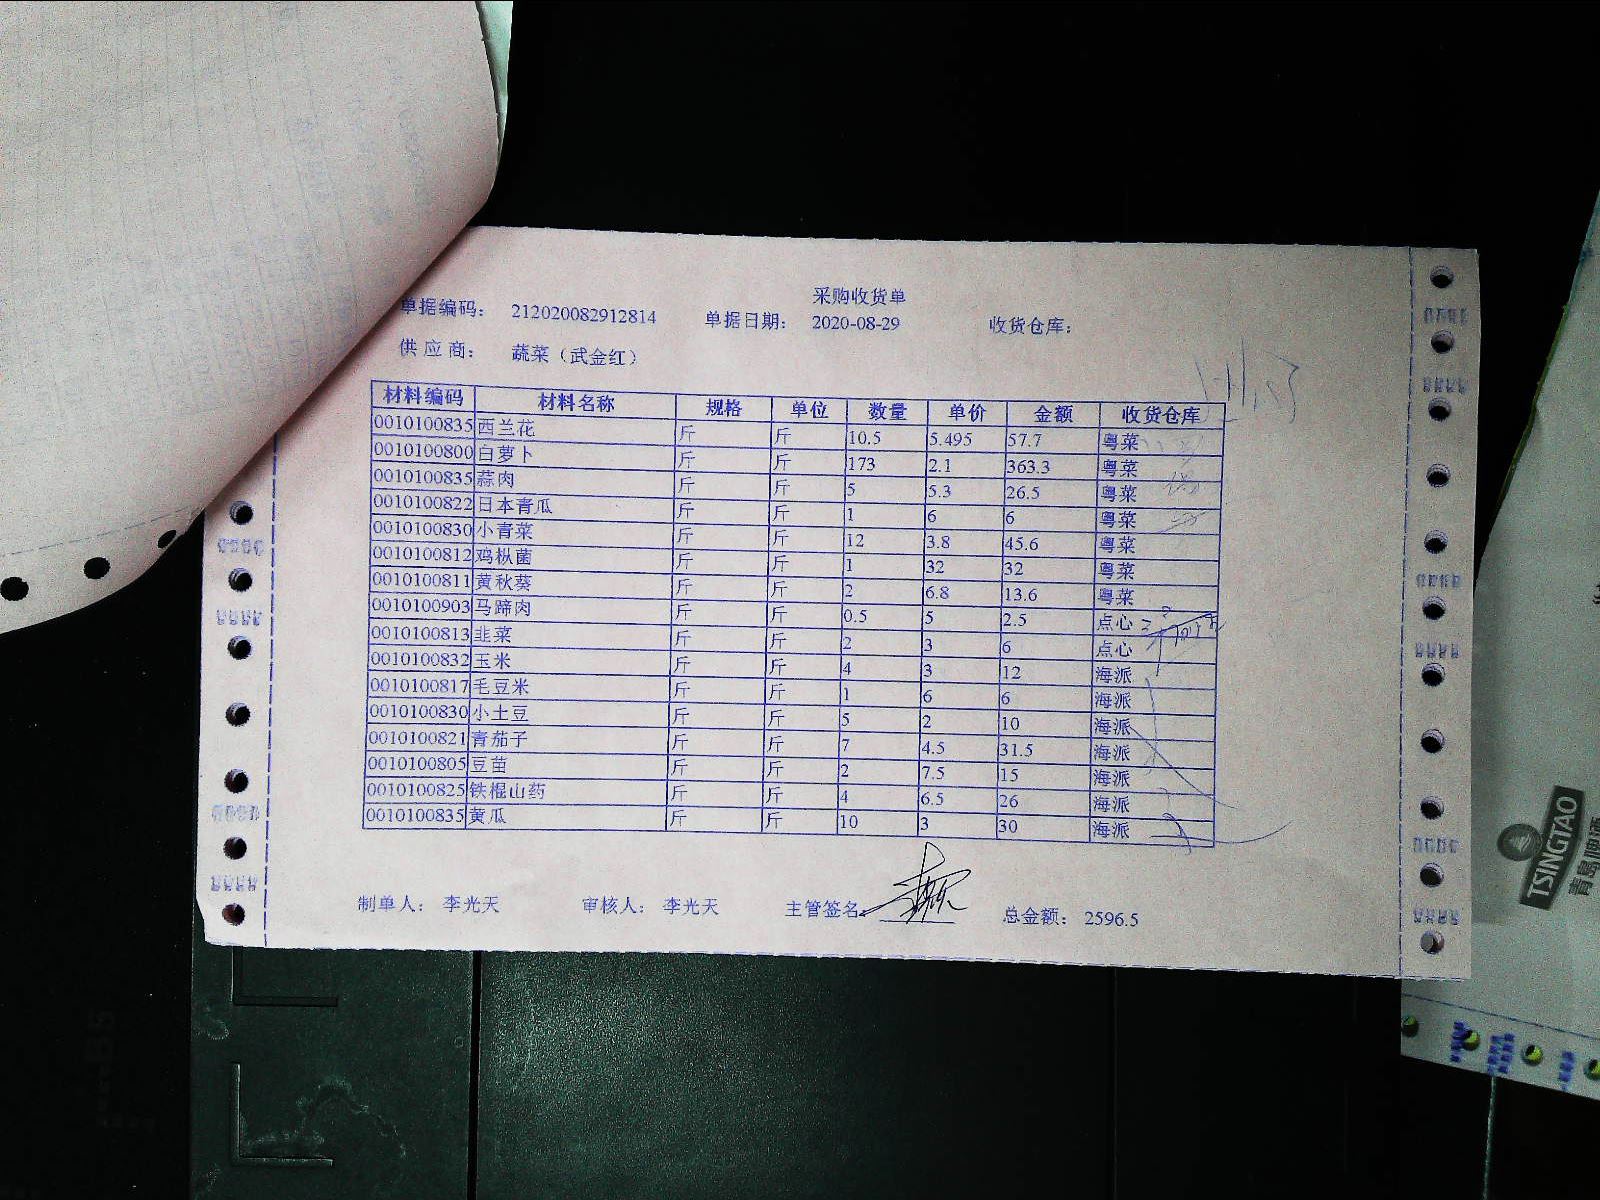 采购收货单
单据编码: 212020082912814 单据日期: 2020-08-29 收货仓库:
供应商: 蔬菜（武金红）
材料编码 材料名称 规格 单位 数量 单价 金额 收货仓库
0010100835 西兰花 斤 斤 10.5 5.495 57.7 粤菜
0010100800 白萝卜 斤 斤 173 2.1 363.3 粤菜
0010100835 蒜肉 斤 斤 5 5.3 26.5 粤菜
0010100822 日本青瓜 斤 斤 1 6 6 粤菜
0010100830 小青菜 斤 斤 12 3.8 45.6 粤菜
0010100812 鸡枞菌 斤 斤 1 32 32 粤菜
0010100811 黄秋葵 斤 斤 2 6.8 13.6 粤菜
0010100903 马蹄肉 斤 斤 0.5 5 2.5 点心
0010100813 韭菜 斤 斤 2 3 6 点心
0010100832 玉米 斤 斤 4 3 12 海派
0010100817 毛豆米 斤 斤 1 6 6 海派
0010100830 小土豆 斤 斤 5 2 10 海派
0010100821 青茄子 斤 斤 7 4.5 31.5 海派
0010100805 豆苗 斤 斤 2 7.5 15 海派
0010100825 铁棍山药 斤 斤 4 6.5 26 海派
0010100835 黄瓜 斤 斤 10 3 30 海派
制单人: 李光天 审核人: 李光天 主管签名: 总金额: 2596.5
TSINGTAO
青島啤酒